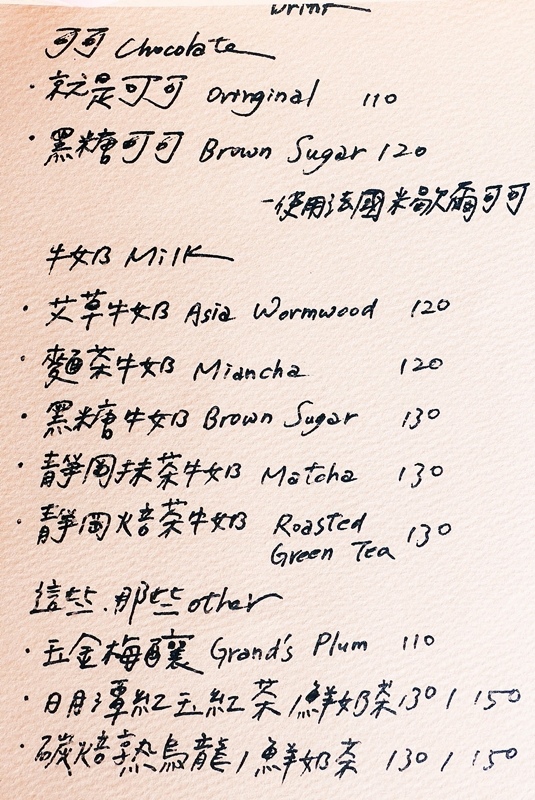 可可 Chocolate
・就是可可 Oringinal 110
・黑糖可可 Brown Sugar 120
-使用法國米歇爾可可
牛奶 Milk
・艾草牛奶 Asia Wormwood 120
・麵茶牛奶 Miancha 120
・黑糖牛奶 Brown Sugar 130
・靜岡抹茶牛奶 Matcha 130
・靜岡焙茶牛奶 Roasted 130
Green Tea
這些.那些 other
・五金梅釀 Grand's Plum 110
・日月潭紅玉紅茶/鮮奶茶 130/150
・碳焙熟烏龍/鮮奶茶 130/150